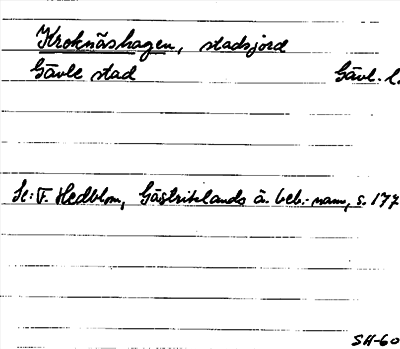 Kroknäshagen, stadsjord
Gävle stad Gävl. l.
Se: F. Hedblom, Gästriklands ä. beb.-namn, s. 177
SH-60